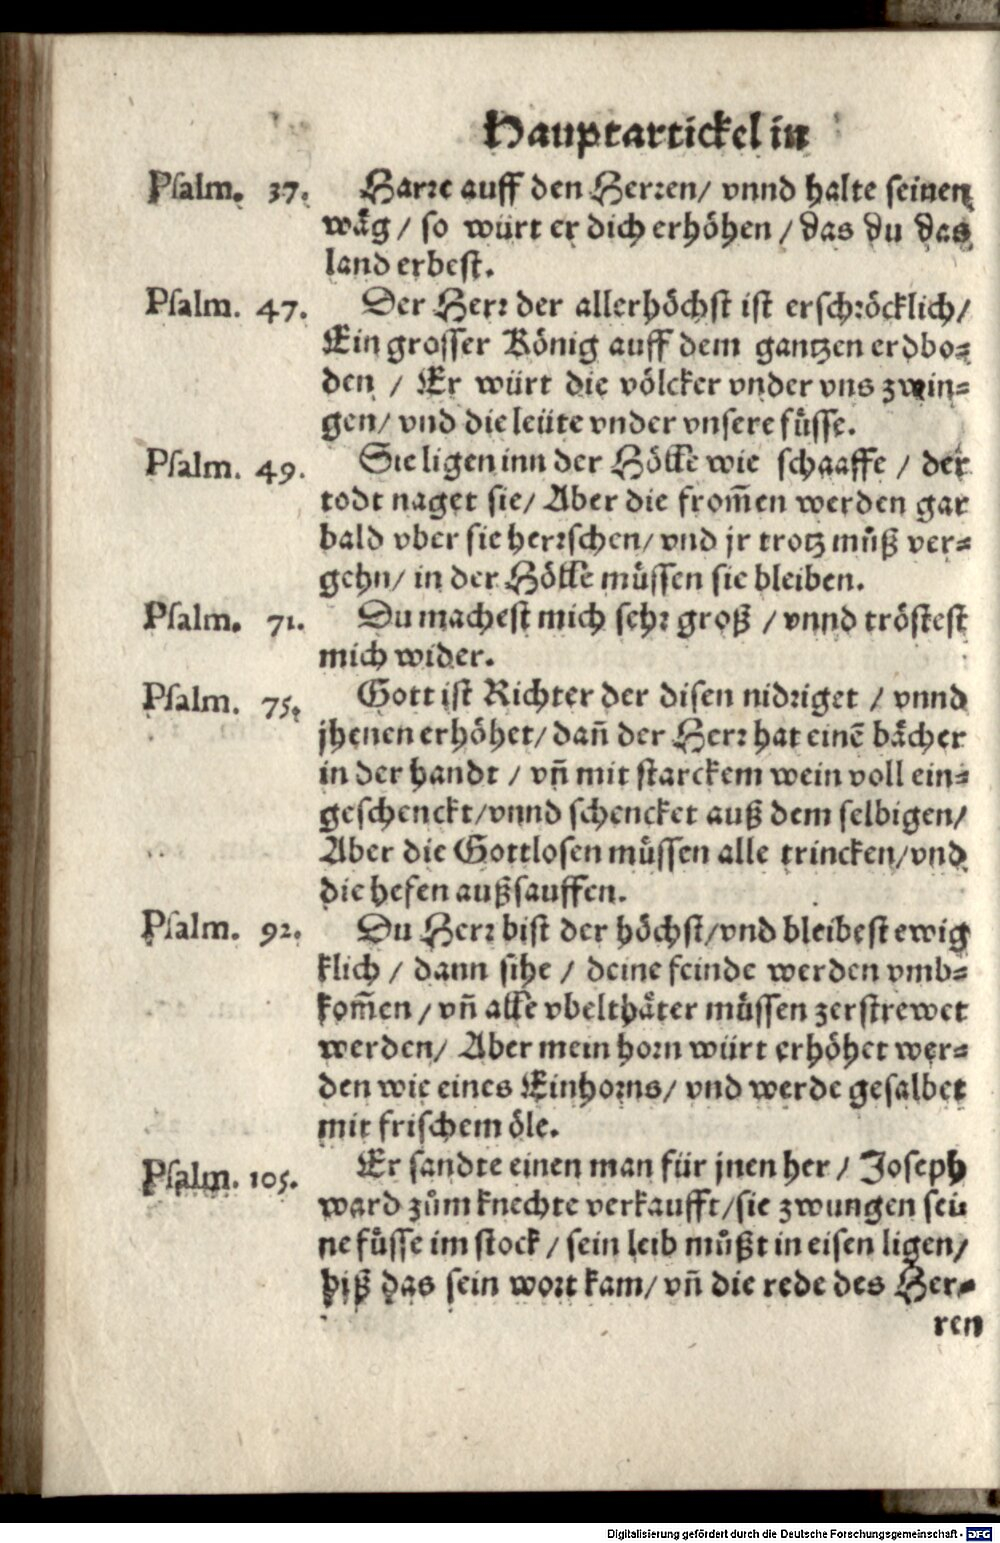 Hauptartickel in
Psalm. 37. Harre auff den Herren/ vnnd halte seinen
wäg / so würt er dich erhöhen / das du das
land erbest.
Psalm. 47. Der Herr der allerhöchst ist erschröcklich/
Ein grosser König auff dem gantzen erdbo⸗
den / Er würt die völcker vnder vns zwin⸗
gen/ vnd die leüte vnder vnsere fůsse.
Psalm. 49. Sie ligen inn der Hölle wie schaaffe / der
todt naget sie/ Aber die from̃en werden gar
bald vber sie herrschen/ vnd jr trotz můß ver⸗
gehn/ in der Hölle můssen sie bleiben.
Psalm. 71. Du machest mich sehr groß / vnnd tröstest
mich wider.
Psalm. 75. Gott ist Richter der disen nidriget / vnnd
jhenen erhöhet/ dañ der Herr hat einē bächer
in der handt / vñ mit starckem wein voll ein⸗
geschenckt/vnnd schencket auß dem selbigen/
Aber die Gottlosen můssen alle trincken/vnd
die hefen außsauffen.
Psalm. 92. Du Herr bist der höchst/vnd bleibest ewig
klich / dann sihe / deine feinde werden vmb⸗
kom̃en / vñ alle vbelthäter můssen zerstrewet
werden/ Aber mein horn würt erhöhet wer⸗
den wie eines Einhorns/ vnd werde gesalbet
mit frischem öle.
Psalm. 105. Er sandte einen man für jnen her / Joseph
ward zům knechte verkaufft/sie zwungen sei
ne fůsse im stock / sein leib můßt in eisen ligen/
biß das sein wort kam/ vñ die rede des Her⸗
ren
Digitalisierung gefördert durch die Deutsche Forschungsgemeinschaft - DFG